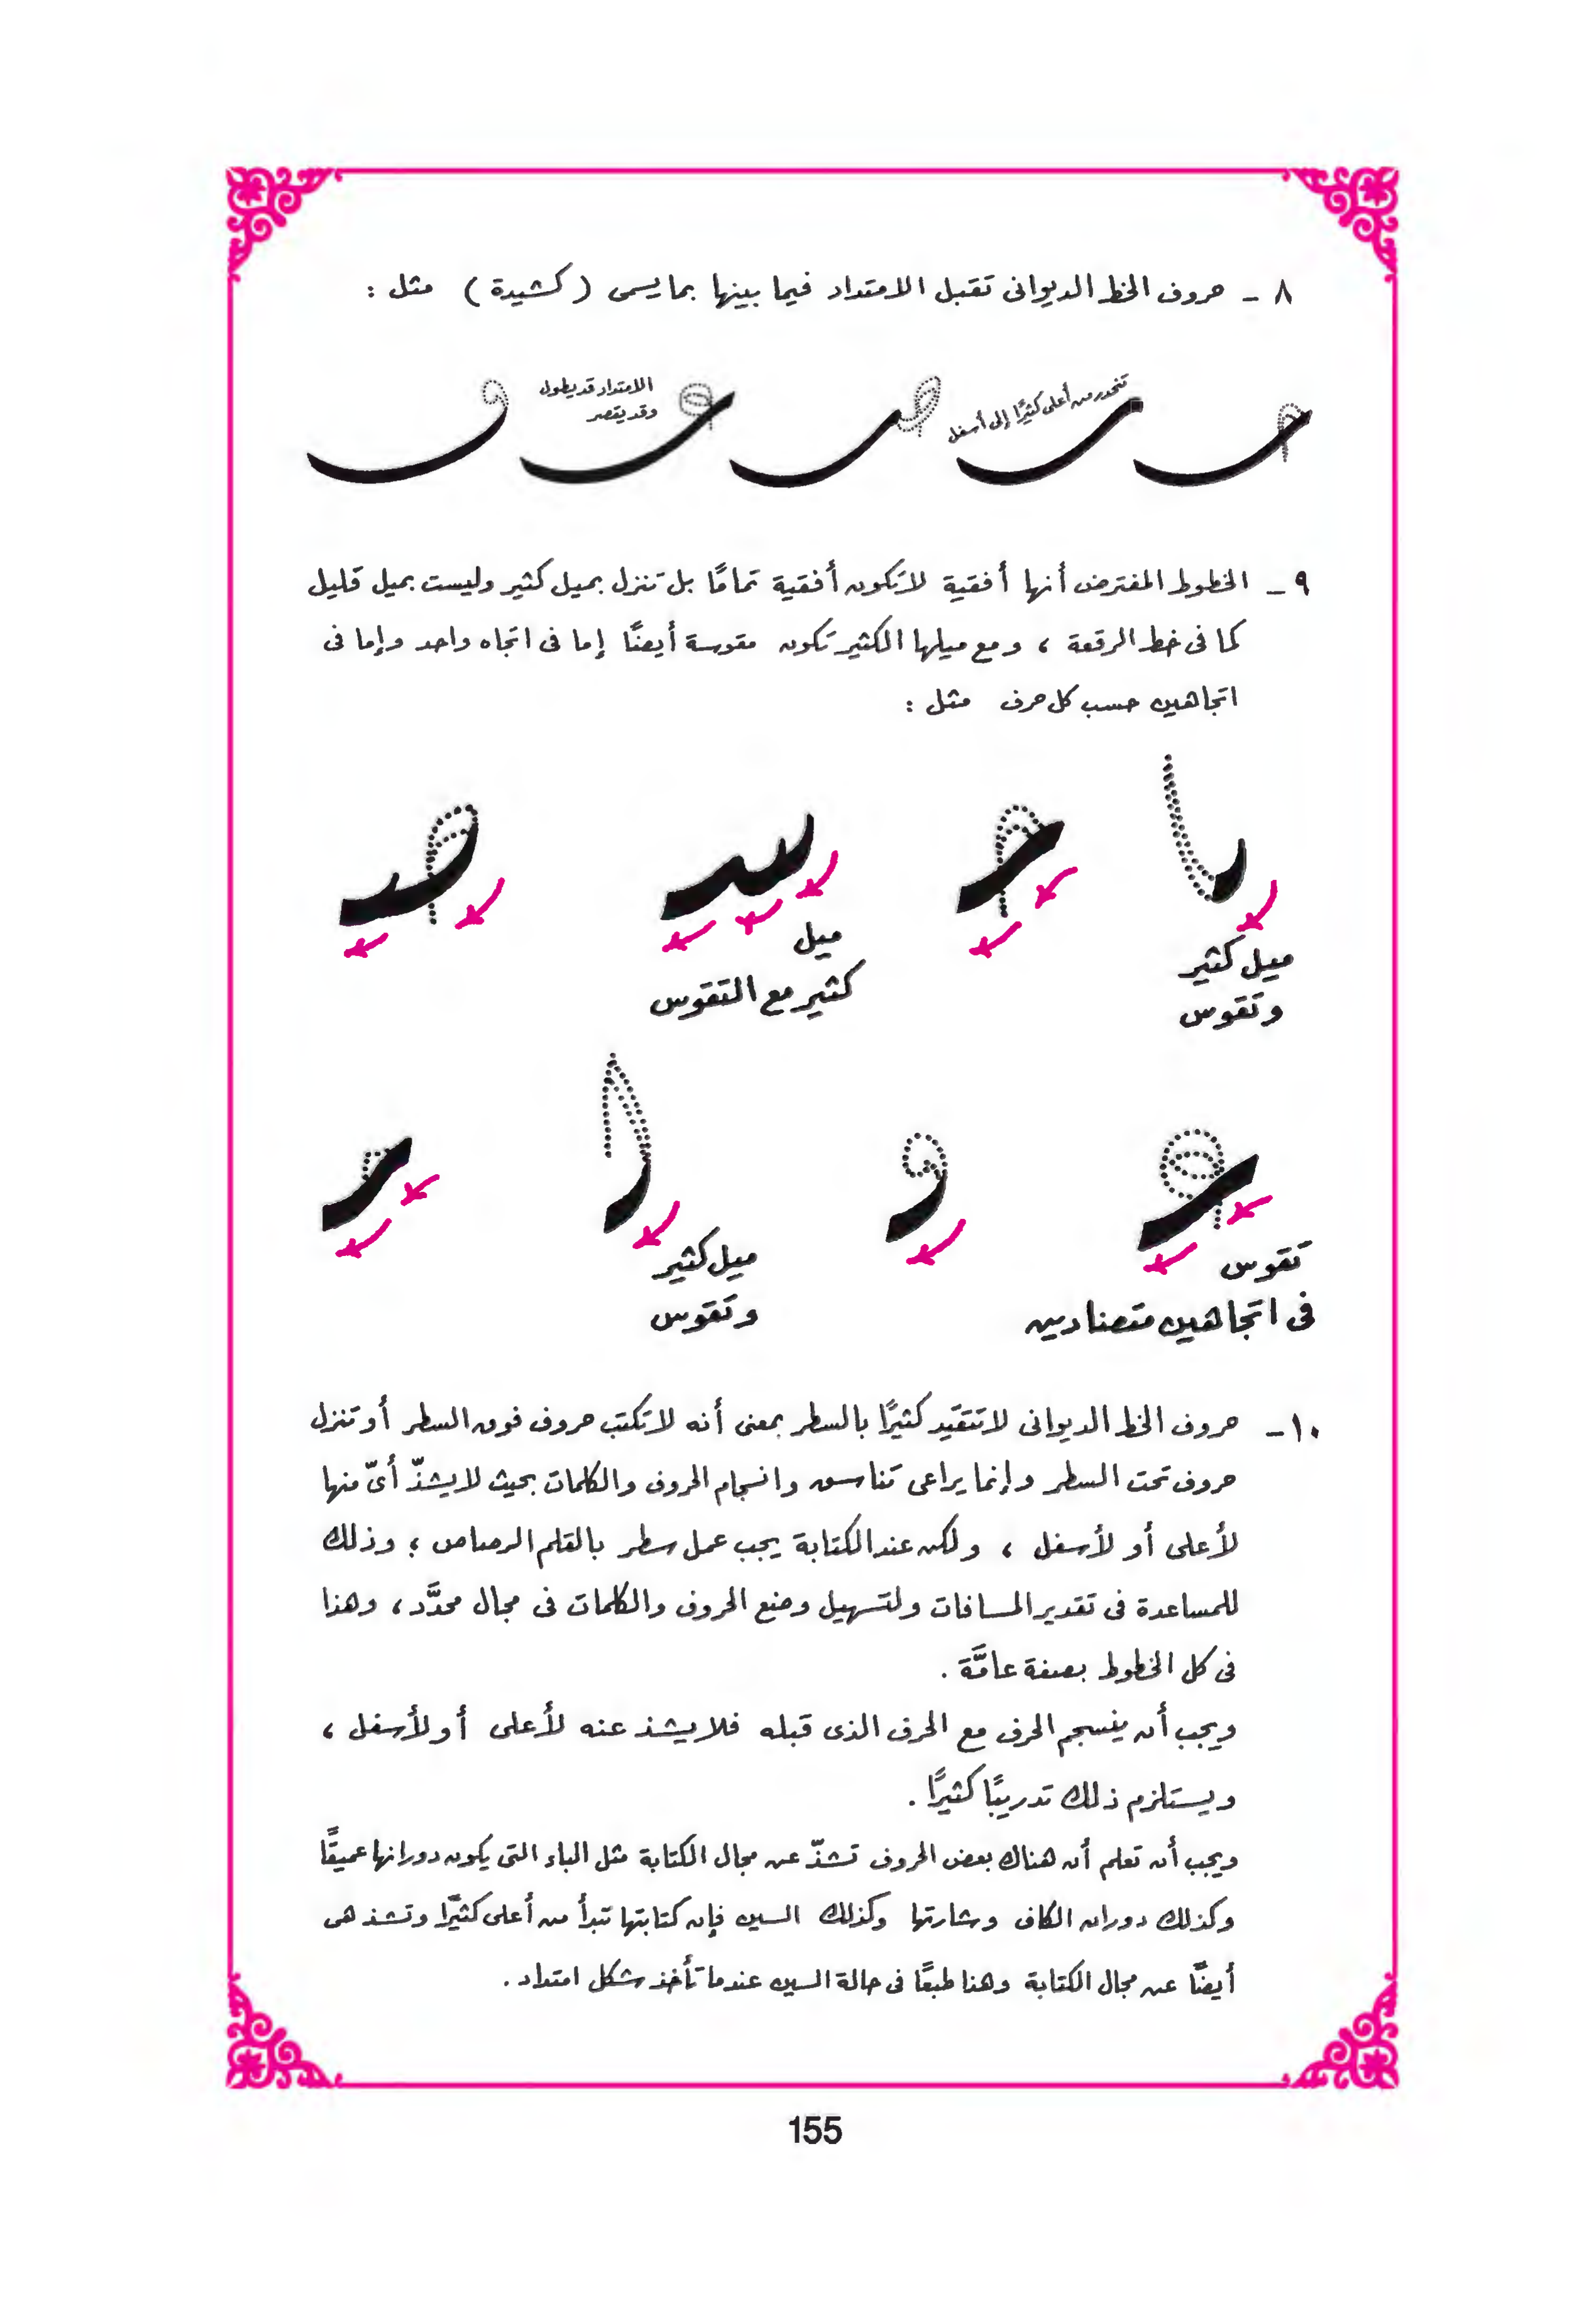 ٨ - حروف الخط الديوانى تقبل الامتداد فيما بينها بما يسمى ( كشيدة ) مثل :
تنحدر من أعلى كثيرًا إلى أسفل
الامتداد قد يطول
وقد يقصر
٩ - الخطوط المفترض أنها أفقية لا تكون أفقية تمامًا بل تنزل بميل كثير وليست بميل قليل
كما فى خط الرقعة ، ومع ميلها الكثير تكون مقوسة أيضًا إما فى اتجاه واحد وإما فى
اتجاهين حسب كل حرف مثل :
ميل كثير
وتقوس
ميل
كثير مع التقوس
تقوس
فى اتجاهين متضادين
ميل كثير
وتقوس
١٠ - حروف الخط الديوانى لا تتقيَّد كثيرًا بالسطر بمعنى أنه لا تكتب حروف فوق السطر أو تنزل
حروف تحت السطر وإنما يراعى تناسق وانسجام الحروف والكلمات بحيث لا يشذّ أىّ منها
لأعلى أو لأسفل ، ولكن عند الكتابة يجب عمل سطر بالقلم الرصاص ؛ وذلك
للمساعدة فى تقدير المسافات ولتسهيل وضع الحروف والكلمات فى مجال محدَّد ، وهذا
فى كل الخطوط بصفة عامَّة .
ويجب أن ينسجم الحرف مع الحرف الذى قبله فلا يشذ عنه لأعلى أو لأسفل ،
ويستلزم ذلك تدريبًا كثيرًا .
ويجب أن تعلم أن هناك بعض الحروف تشذّ عن مجال الكتابة مثل الباء التى يكون دورانها عميقًا
وكذلك دوران الكاف وشارتها وكذلك السين فإن كتابتها تبدأ من أعلى كثيرًا وتشذ هى
أيضًا عن مجال الكتابة وهنا طبعًا فى حالة السين عندما تأخذ شكل امتداد .
155